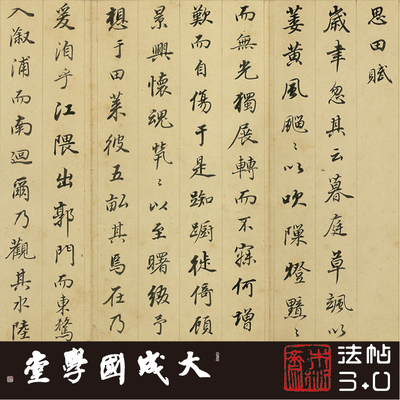 思田賦
歲聿忽其云暮庭草颯以
萎黃風飋〻以吹隟燈黯〻
而無光獨展轉而不寐何增
歎而自傷于是踟躕徙倚顧
景興懷魂煢〻以至曙綴予
想于田萊彼五畝其焉在乃
爰洎乎江隈出郭門而東騖
入漵浦而南迴爾乃觀其水陸
大成國學堂
法帖
3.0